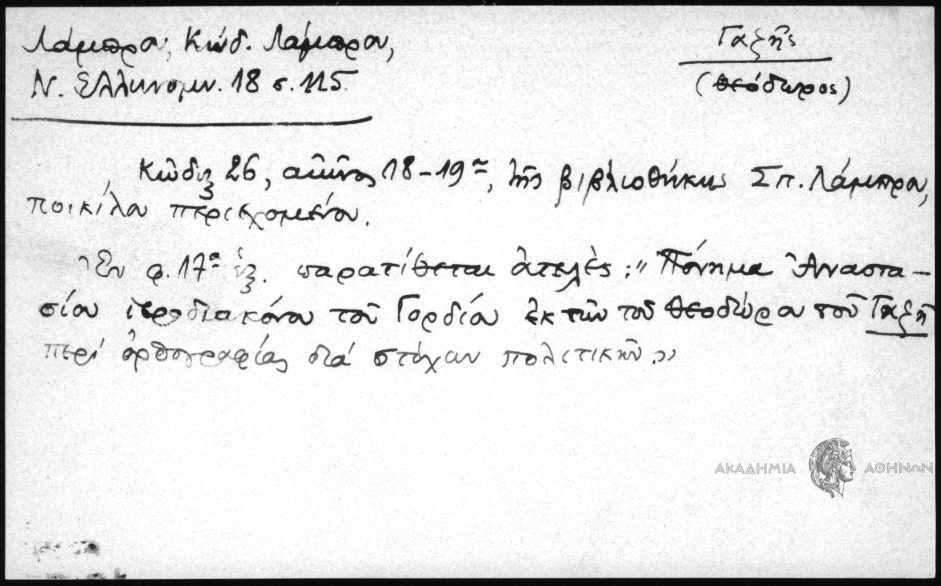 Λάμπρου, Κώδ. Λάμπρου,
Ν. Ελληνομν. 18 σ. 115.
Γαζῆς
(Θεόδωρος)
Κῶδιξ 26, αἰῶνος 18-19ου, τῆς βιβλιοθήκης Σπ. Λάμπρου,
ποικίλου περιεχομένου.
Ἐν φ. 17α ἑξ. παρατίθεται ἀτελές: "Πόνημα Ἀναστα-
σίου ἱεροδιακόνου τοῦ Γορδίου ἐκ τῶν τοῦ Θεοδώρου τοῦ Γαζῆ
περί ὀρθογραφίας διά στίχων πολιτικῶν"
ΑΚΑΔΗΜΙΑ ΑΘΗΝΩΝ